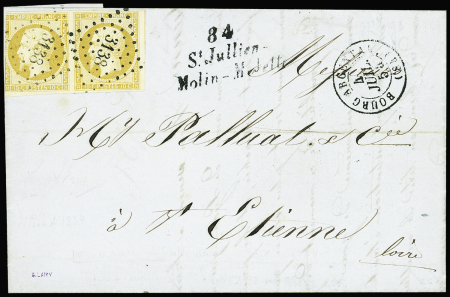 3138
3138
84
St Jullien-
Molin-Molette
BOURG ARGENTAL
Mrs Palluat & Cie
à St Etienne
Loire